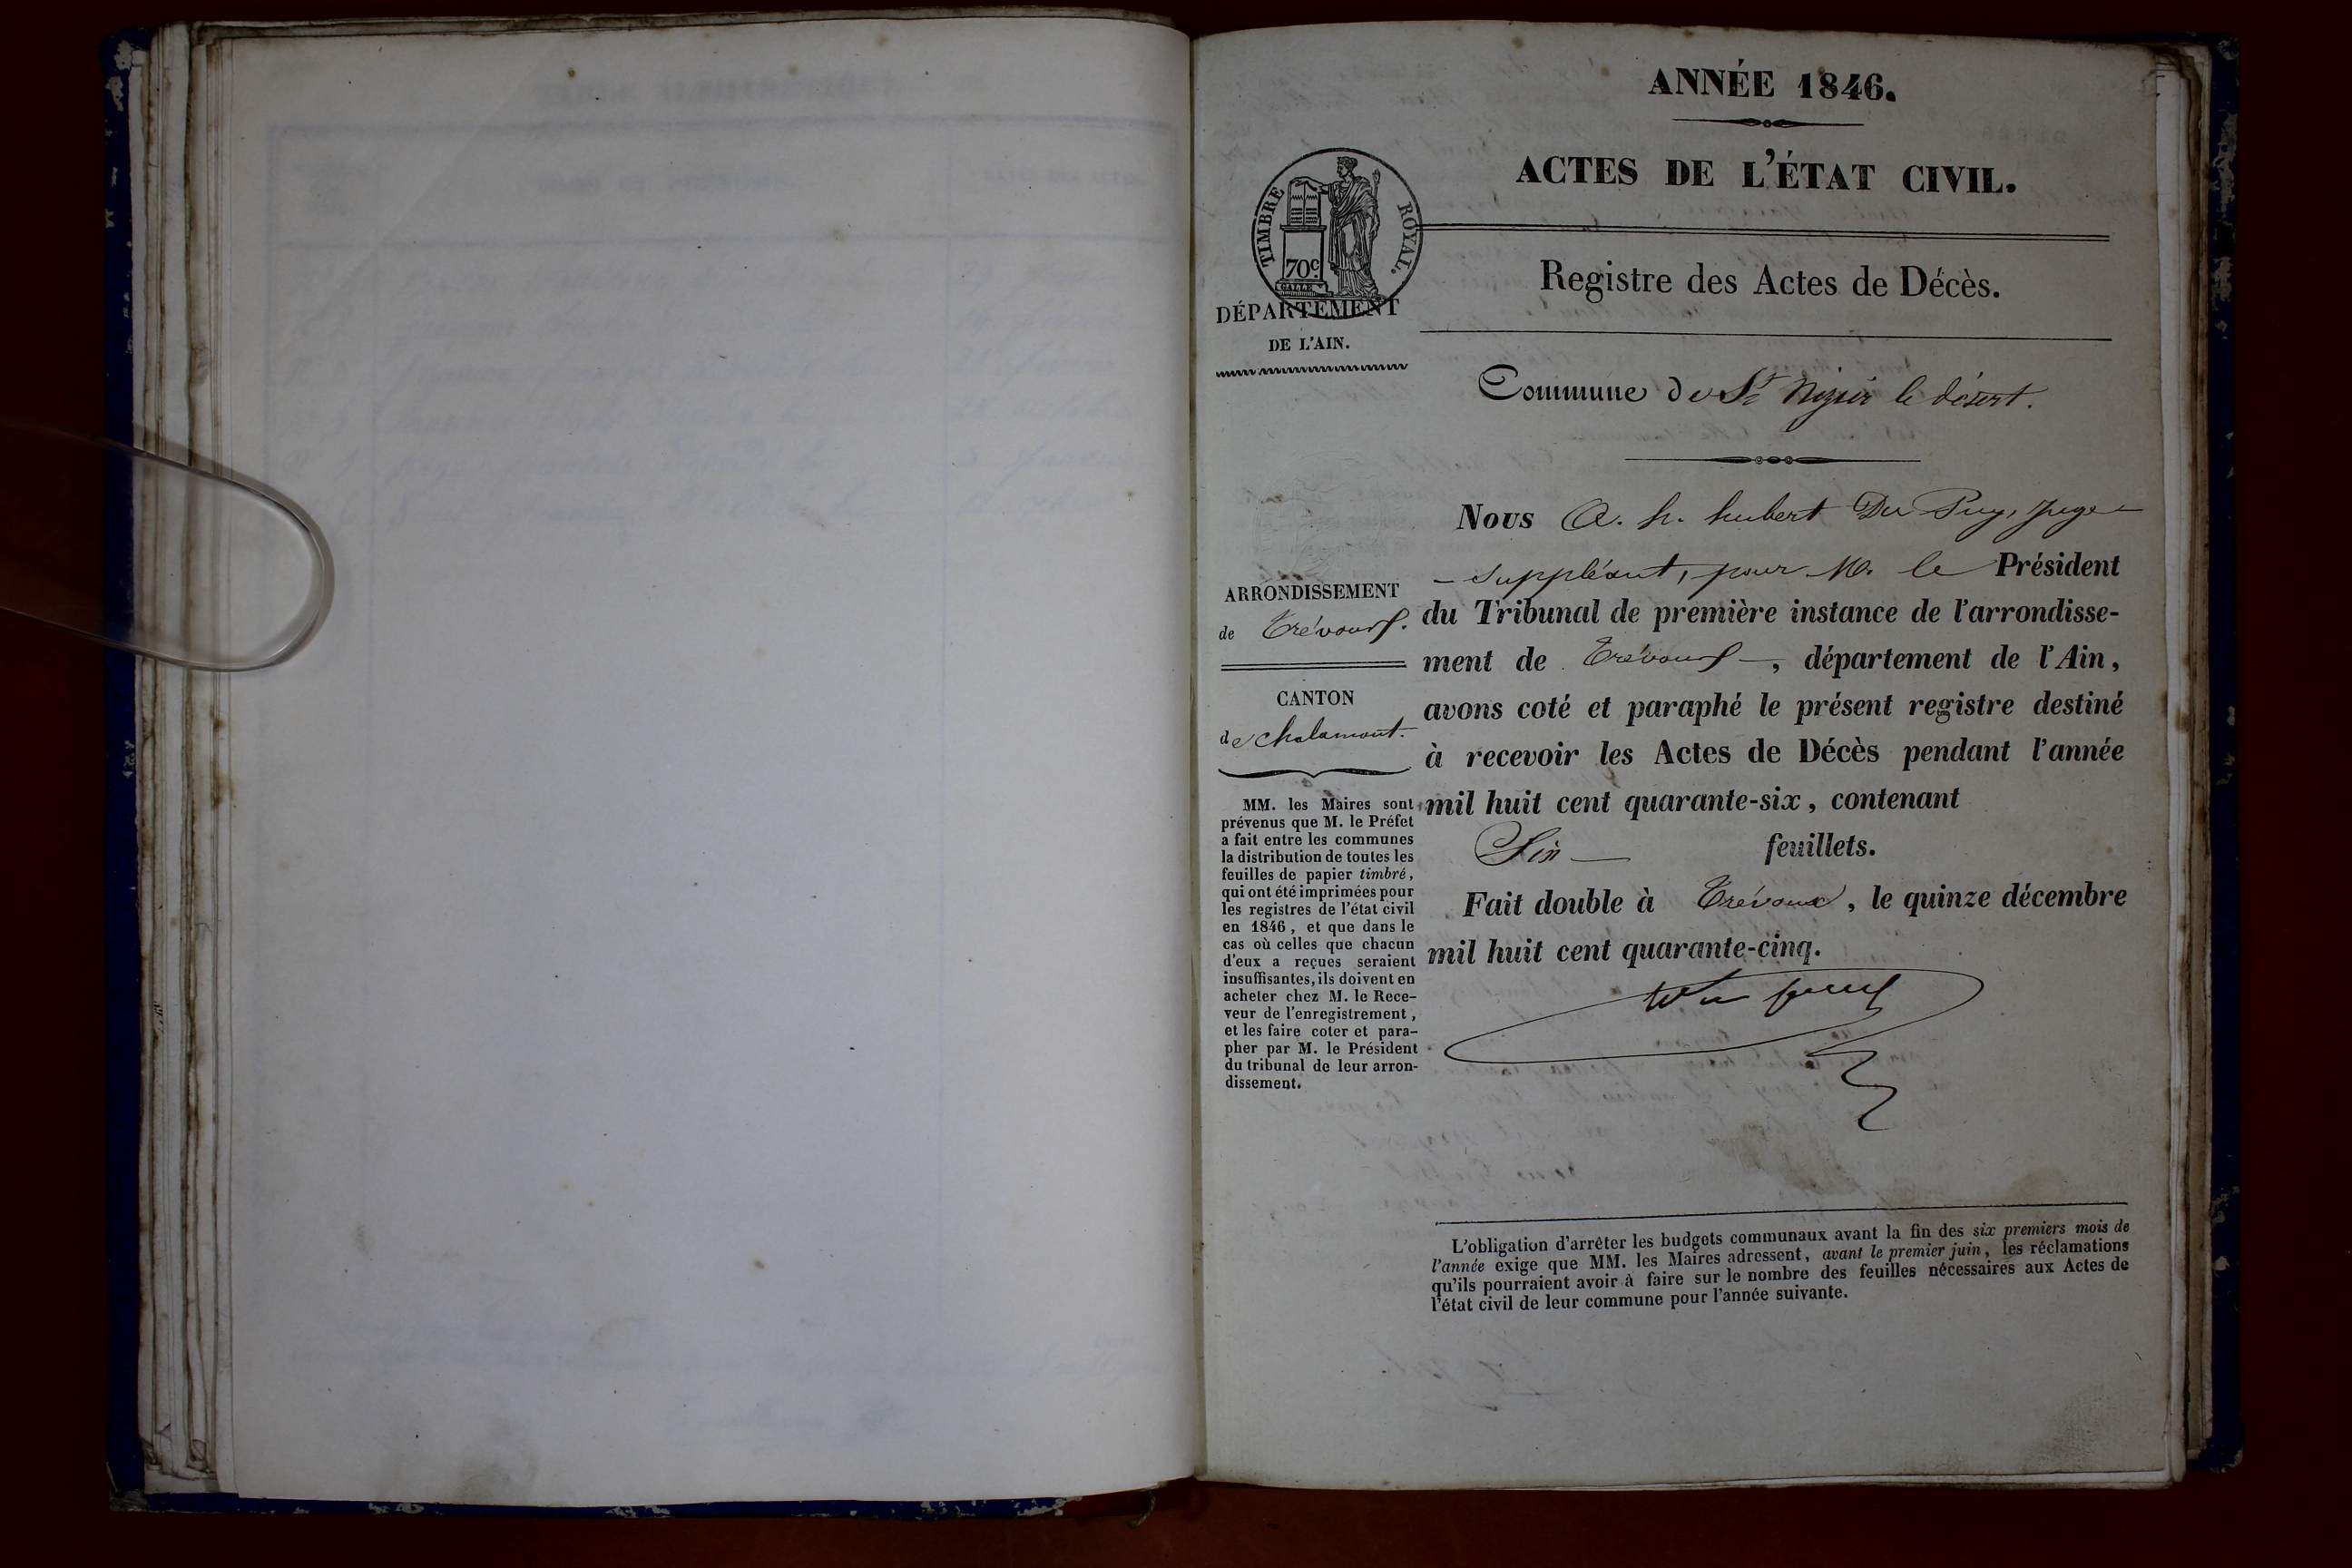 ANNÉE 1846.
ACTES DE L'ÉTAT CIVIL.
TIMBRE ROYAL.
70c
DÉPARTEMENT
DE L'AIN.
Registre des Actes de Décès.
Commune de St Nizier le désert.
ARRONDISSEMENT
de Trévoux.
CANTON
de Chalamont.
MM. les Maires sont
prévenus que M. le Préfet
a fait entre les communes
la distribution de toutes les
feuilles de papier timbré,
qui ont été imprimées pour
les registres de l'état civil
en 1846, et que dans le
cas où celles que chacun
d'eux a reçues seraient
insuffisantes, ils doivent en
acheter chez M. le Rece-
veur de l'enregistrement,
et les faire coter et para-
pher par M. le Président
du tribunal de leur arron-
dissement.
Nous A. h. hubert Du Puy, Juge
- Suppléant, pour M. le Président
du Tribunal de première instance de l'arrondisse-
ment de Trévoux, département de l'Ain,
avons coté et paraphé le présent registre destiné
à recevoir les Actes de Décès pendant l'année
mil huit cent quarante-six, contenant
Six feuillets.
Fait double à Trévoux, le quinze décembre
mil huit cent quarante-cinq.
L'obligation d'arrêter les budgets communaux avant la fin des six premiers mois de
l'année exige que MM. les Maires adressent, avant le premier juin, les réclamations
qu'ils pourraient avoir à faire sur le nombre des feuilles nécessaires aux Actes de
l'état civil de leur commune pour l'année suivante.